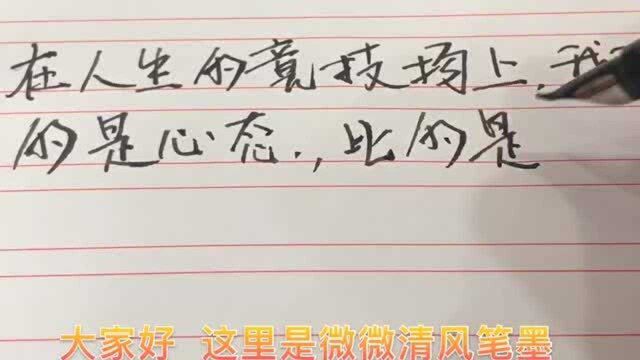 在人生的竟技场上,我
的是心态.,比的是
大家好 这里是微微清风笔墨